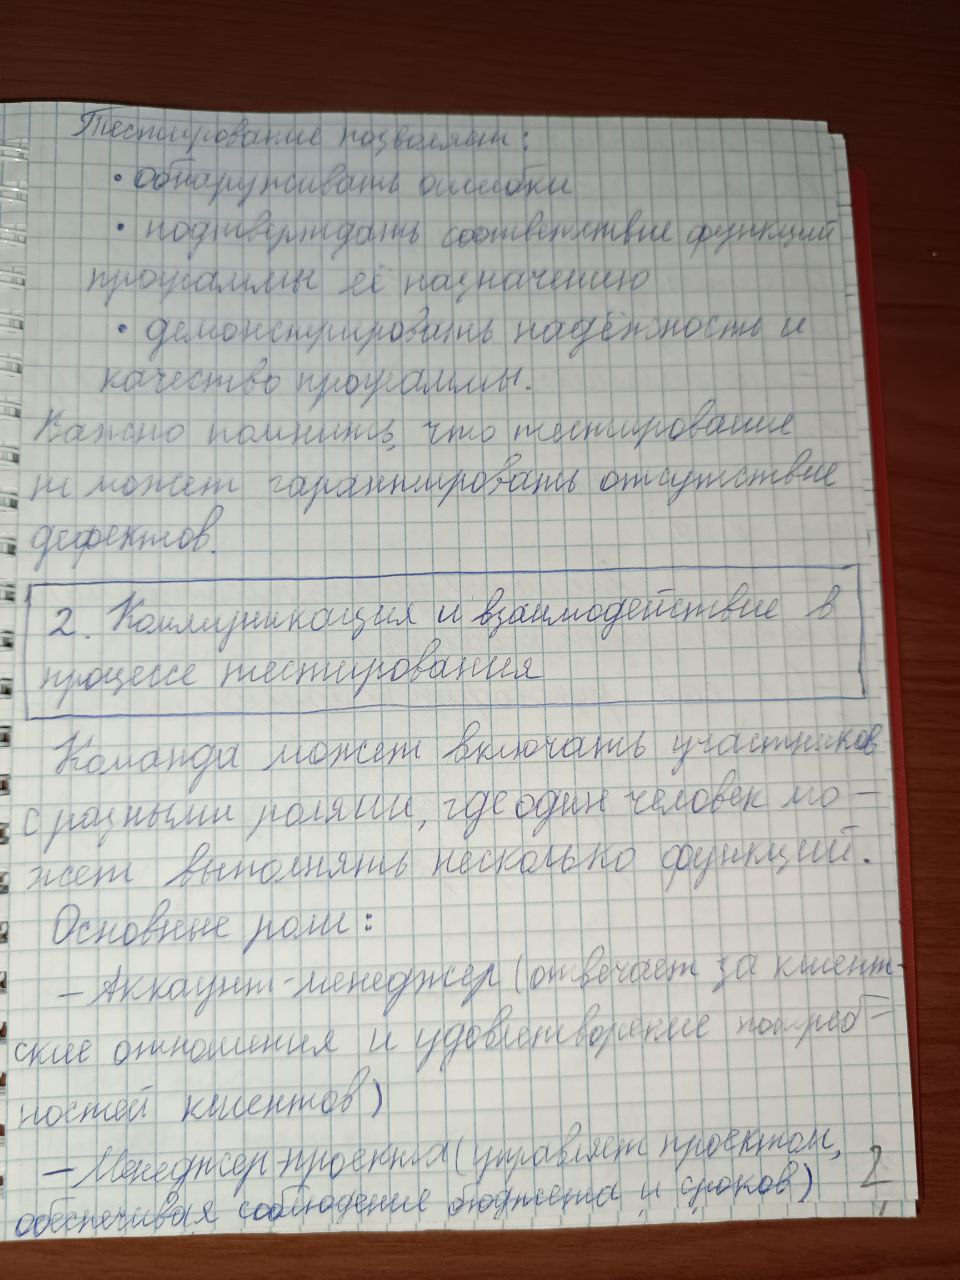 Тестирование позволяет:
• обнаруживать ошибки
• подтверждать соответствие функций
программы её назначению
• демонстрировать надёжность и
качество программы.
Важно помнить, что тестирование
не может гарантировать отсутствие
дефектов.
2. Коммуникация и взаимодействие в
процессе тестирования
Команда может включать участников
с разными ролями, где один человек мо-
жет выполнять несколько функций.
Основные роли:
– Аккаунт-менеджер (отвечает за клиент-
ские отношения и удовлетворение потреб-
ностей клиентов)
– Менеджер проекта (управляет проектом,
обеспечивая соблюдение бюджета и сроков)
2